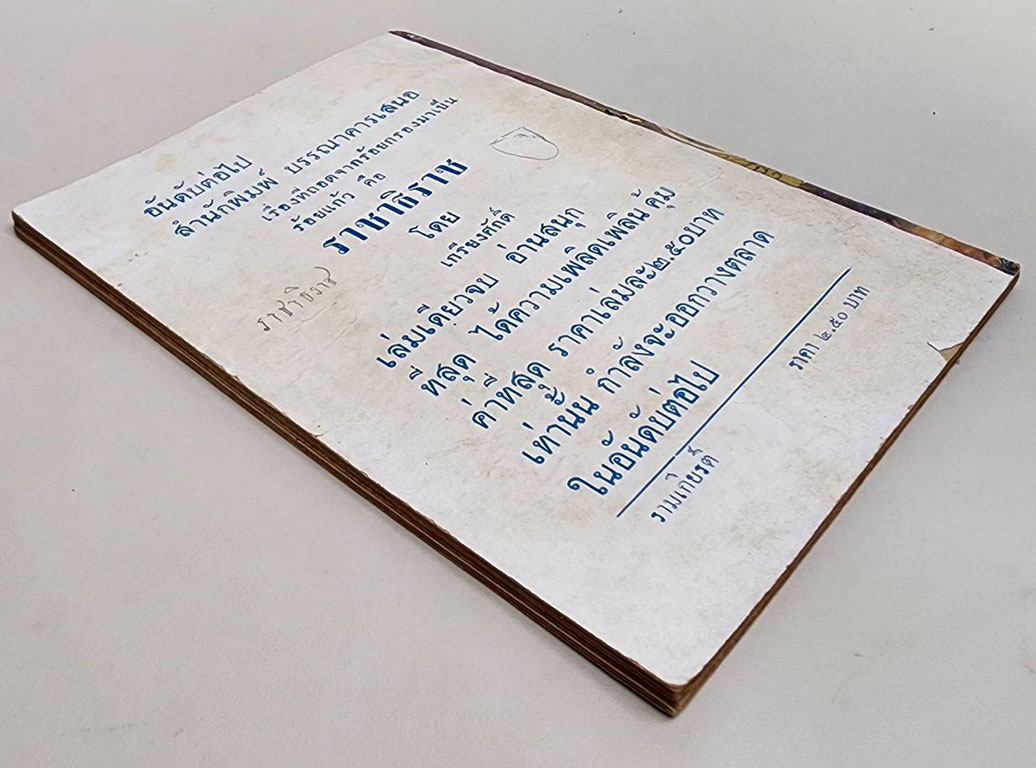 อันดับต่อไป
สำนักพิมพ์ บรรณาคารเสนอ
เรื่องที่ถอดจากร้อยกรองมาเป็น
ร้อยแก้ว คือ
ราชาธิราช
โดย
เกรียงศักดิ์
ราชาธิราช
เล่มเดียวจบ อ่านสนุก
ที่สุด ได้ความเพลิดเพลิน คุ้ม
ค่าที่สุด ราคาเล่มละ๒.๕๐บาท
เท่านั้น กำลังจะออกวางตลาด
ในอันดับต่อไป
ราคา ๒.๕๐ บาท
รามเกียรติ์